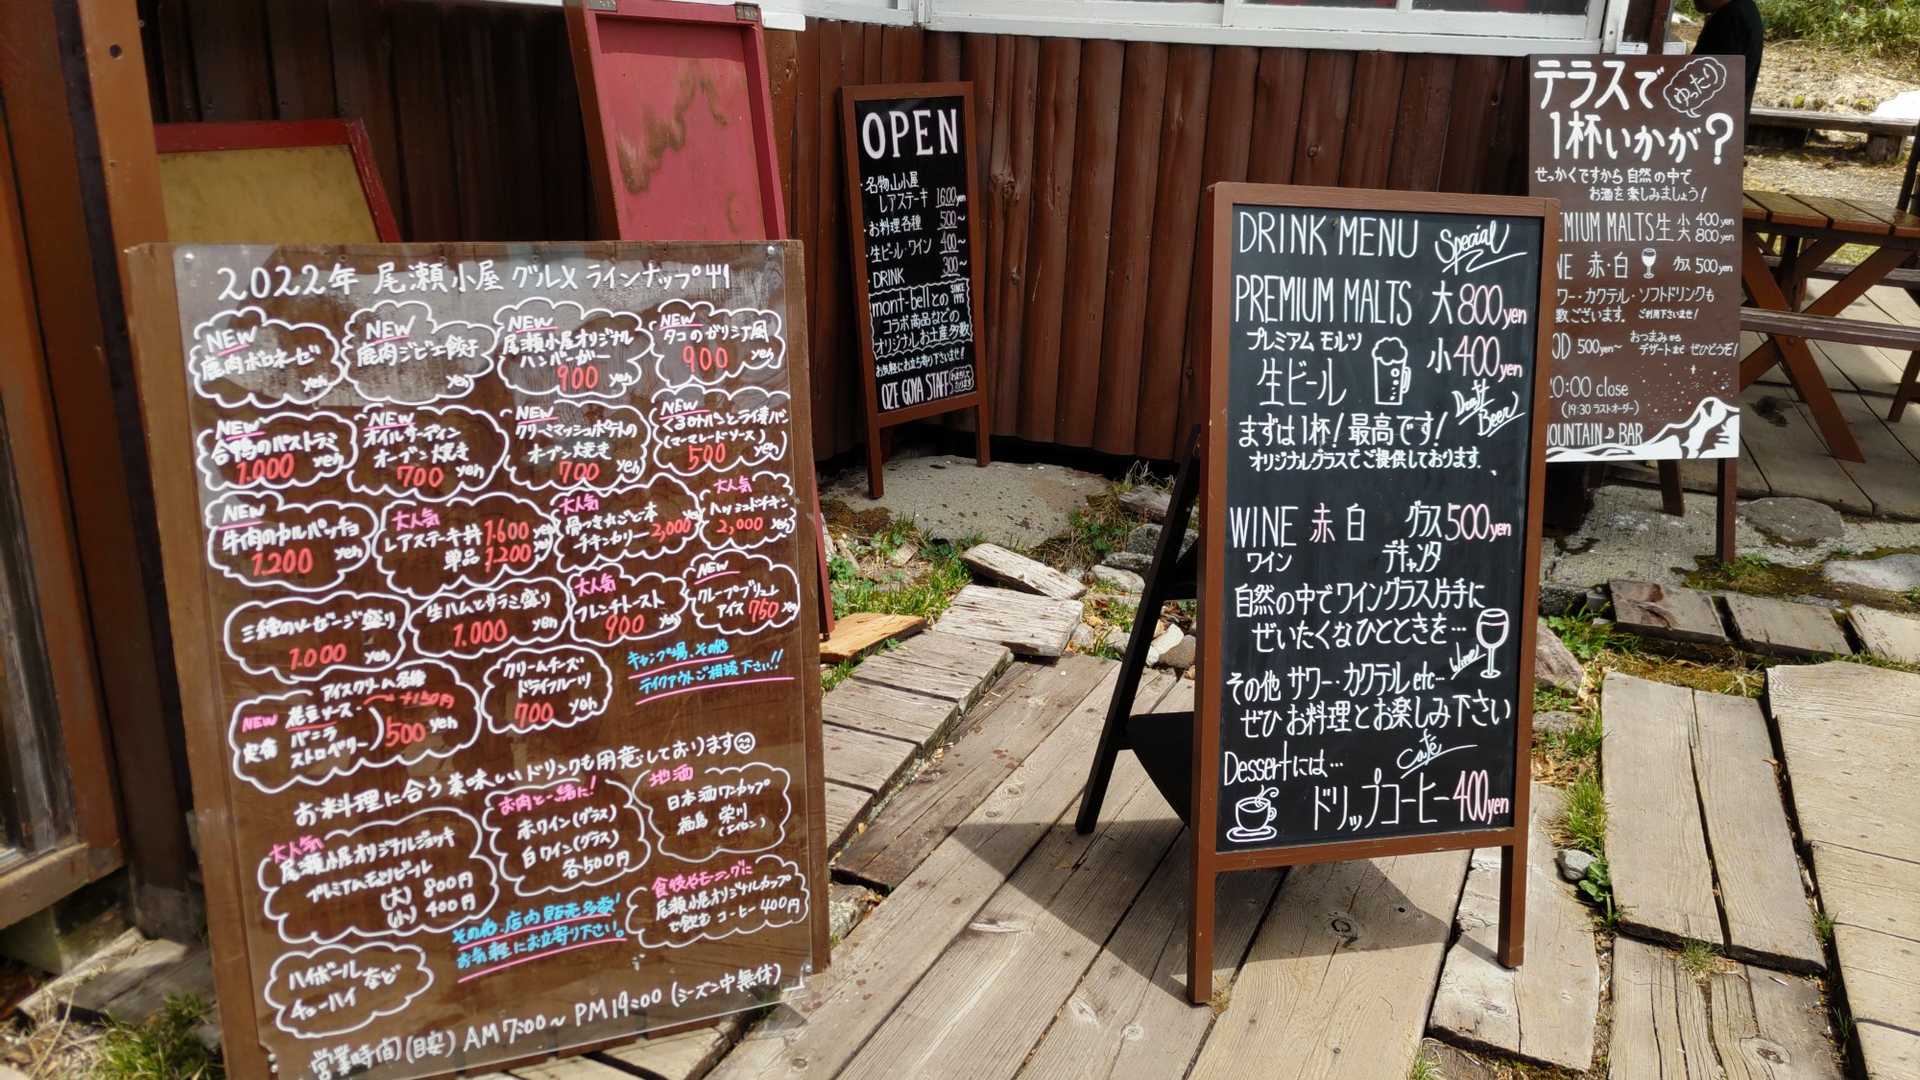 2022年 尾瀬小屋 グルメ ラインナップ
NEW
鹿肉ボロネーゼ
yen
NEW
鹿肉ジビエ餃子
yen
NEW
尾瀬小屋オリジナル
ハンバーガー
900 yen
NEW
タコのガリシア風
900 yen
NEW
合鴨のパストラミ
1.000 yen
NEW
オイルサーディン
オーブン焼き
700 yen
NEW
クリーミマッシュポテトの
オーブン焼き
700 yen
NEW
くるみパンとライ麦パン
(マーマレードソース)
500 yen
NEW
牛肉のカルパッチョ
1.200 yen
大人気
レアステーキ丼 1.600 yen
単品 1.200 yen
大人気
骨つき丸ごと一本
チキンカリー 2,000 yen
大人気
チキン
2,000 yen
三種のソーセージ盛り
1.000 yen
生ハムとサラミ盛り
1.000 yen
大人気
フレンチトースト
900 yen
NEW
クレープブリュレ
アイス 750 yen
アイスクリーム各種
NEW 花豆ソース +150円
定番 バニラ
ストロベリー
500 yen
クリームチーズ
ドライフルーツ
700 yen
キャンプ場、その他
テイクアウトご相談下さい!!
お料理に合う美味しいドリンクも用意しております
大人気
尾瀬小屋オリジナルジョッキ
プレミアムモルツビール
(大) 800円
(小) 400円
お肉と一緒に!
赤ワイン(グラス)
白ワイン(グラス)
各500円
地酒
日本酒ワンカップ
福島 栄川
(エイセン)
その他、店内販売多数!
お気軽にお立寄り下さい。
食後やモーニングに
尾瀬小屋オリジナルカップ
で飲む コーヒー 400円
ハイボール
チューハイ など
営業時間(目安) AM7:00～PM19:00 (シーズン中無休)
OPEN
・名物山小屋
レアステーキ 1600yen
・お料理各種 500～
・生ビール・ワイン 400～
・DRINK 300～
mont-bellとの SINCE 1995
コラボ商品などの
オリジナルお土産多数
お気軽にお立ち寄り下さいませ!
OZE GOYA STAFF
DRINK MENU Special
PREMIUM MALTS 大800yen
プレミアム モルツ 小400yen
生ビール
Draft Beer
まずは1杯!最高です!
オリジナルグラスでご提供しております.
WINE 赤 白 グラス500yen
ワイン デキャンタ
自然の中でワイングラス片手に
ぜいたくなひとときを…
Wine
その他 サワー・カクテル etc…
ぜひ お料理とお楽しみ下さい
Dessertには… Cafe
ドリップコーヒー 400yen
テラスで ゆったり
1杯いかが?
せっかくですから 自然の中で
お酒を楽しみましょう!
EMIUM MALTS生 小 400yen
大 800yen
NE 赤・白 グラス 500yen
ワー・カクテル・ソフトドリンクも
数ございます. ご利用下さいませ!
OD 500yen～ おつまみから
デザートまで ぜひどうぞ!
20:00 close
(19:30 ラストオーダー)
MOUNTAIN BAR